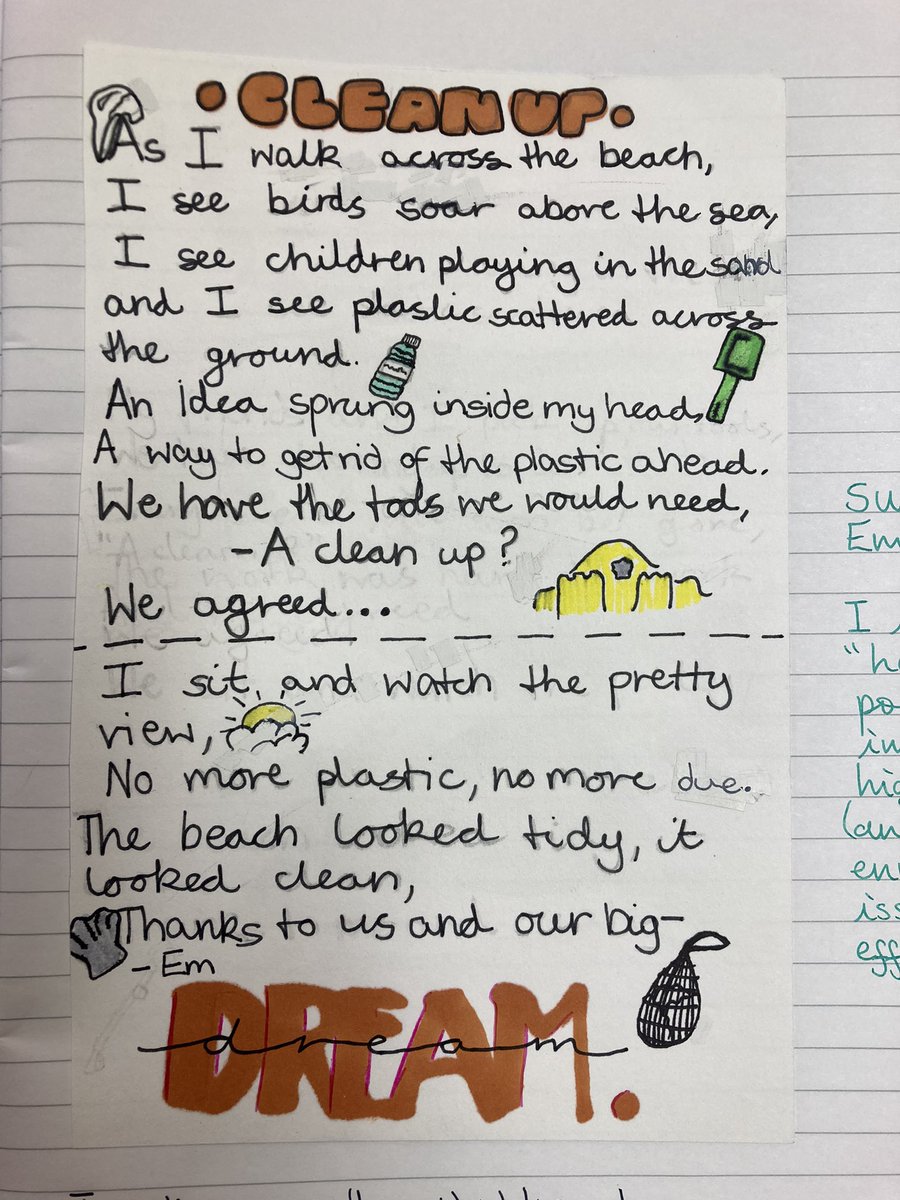 • CLEAN UP.
As I walk across the beach,
I see birds soar above the sea,
I see children playing in the sand
and I see plastic scattered across
the ground.
An idea sprung inside my head,
A way to get rid of the plastic ahead.
We have the tools we would need,
- A clean up?
We agreed...
I sit, and watch the pretty
view,
No more plastic, no more due.
The beach looked tidy, it
looked clean,
Thanks to us and our big-
- Em
DREAM.
dream
Su
Em
I
"h
po
in
hig
(an
en
iss
eff